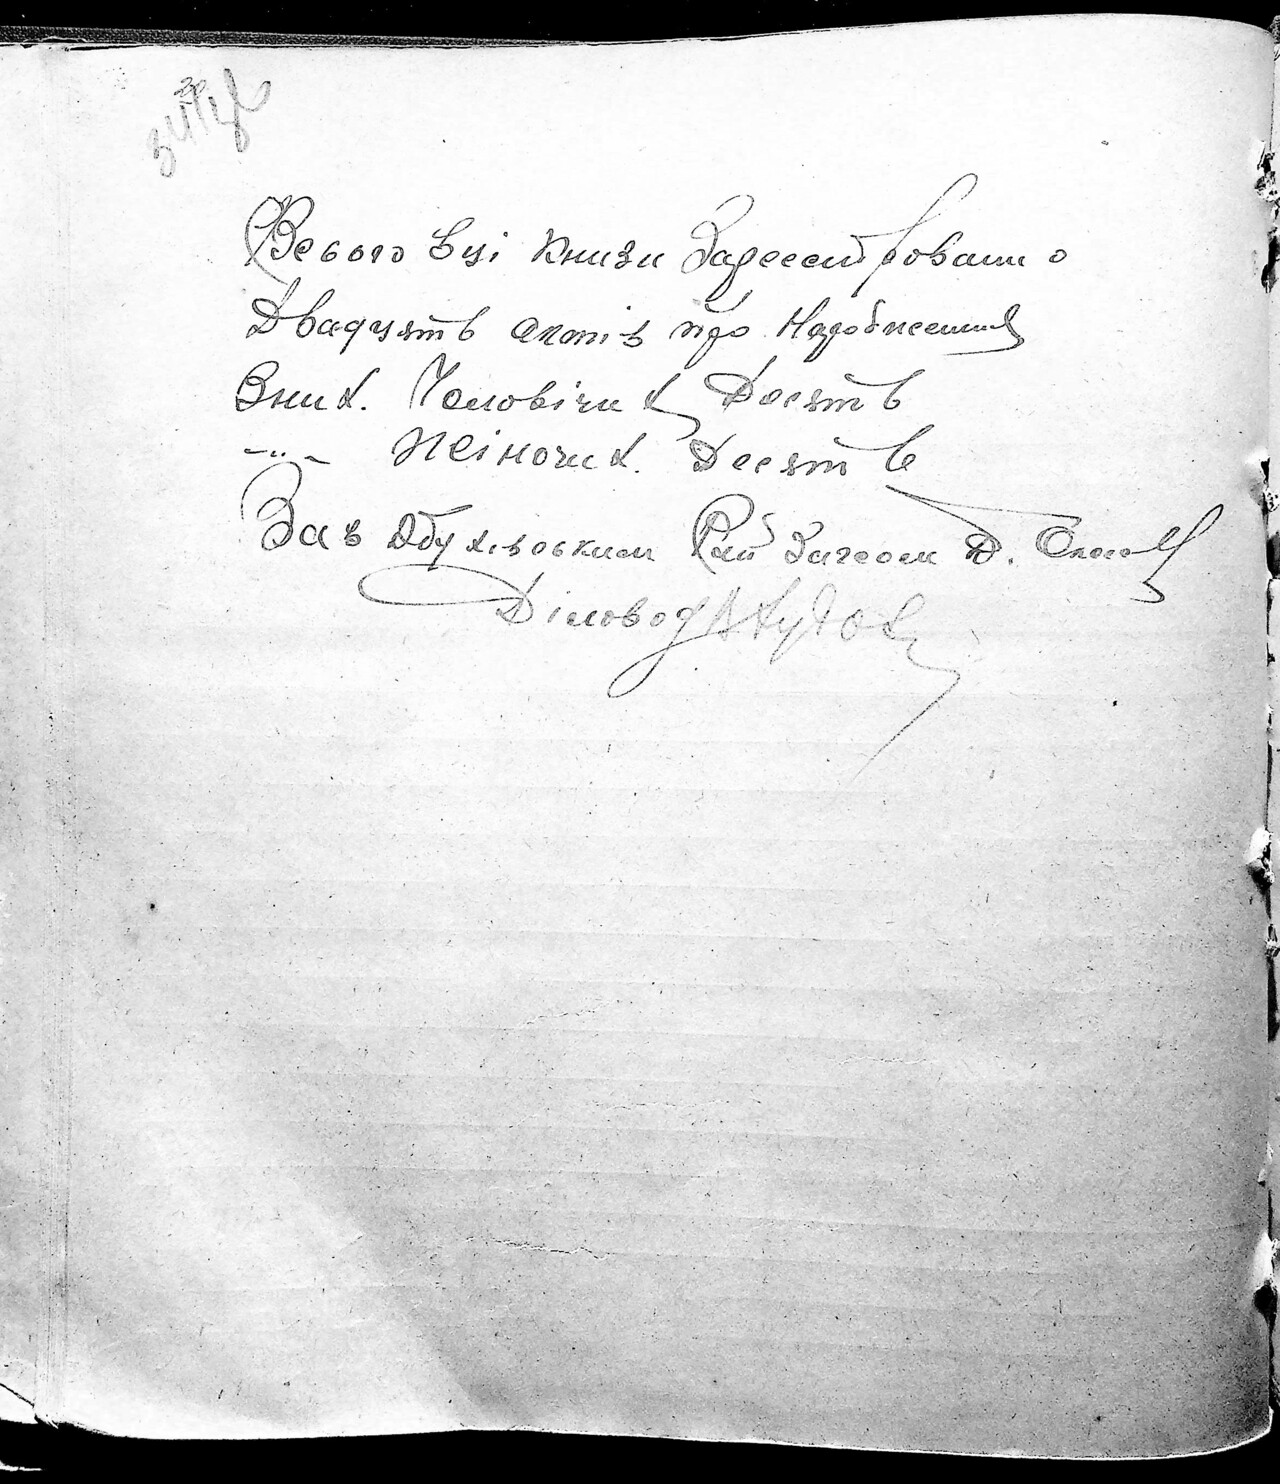 Всього вці книзи Зареестровашо
Двадцять Актів про Народження
Зних. Чоловічих Десять
-"- Жіночих. Десять
Зав Обухівським Рай Загсом Д.
Діловод